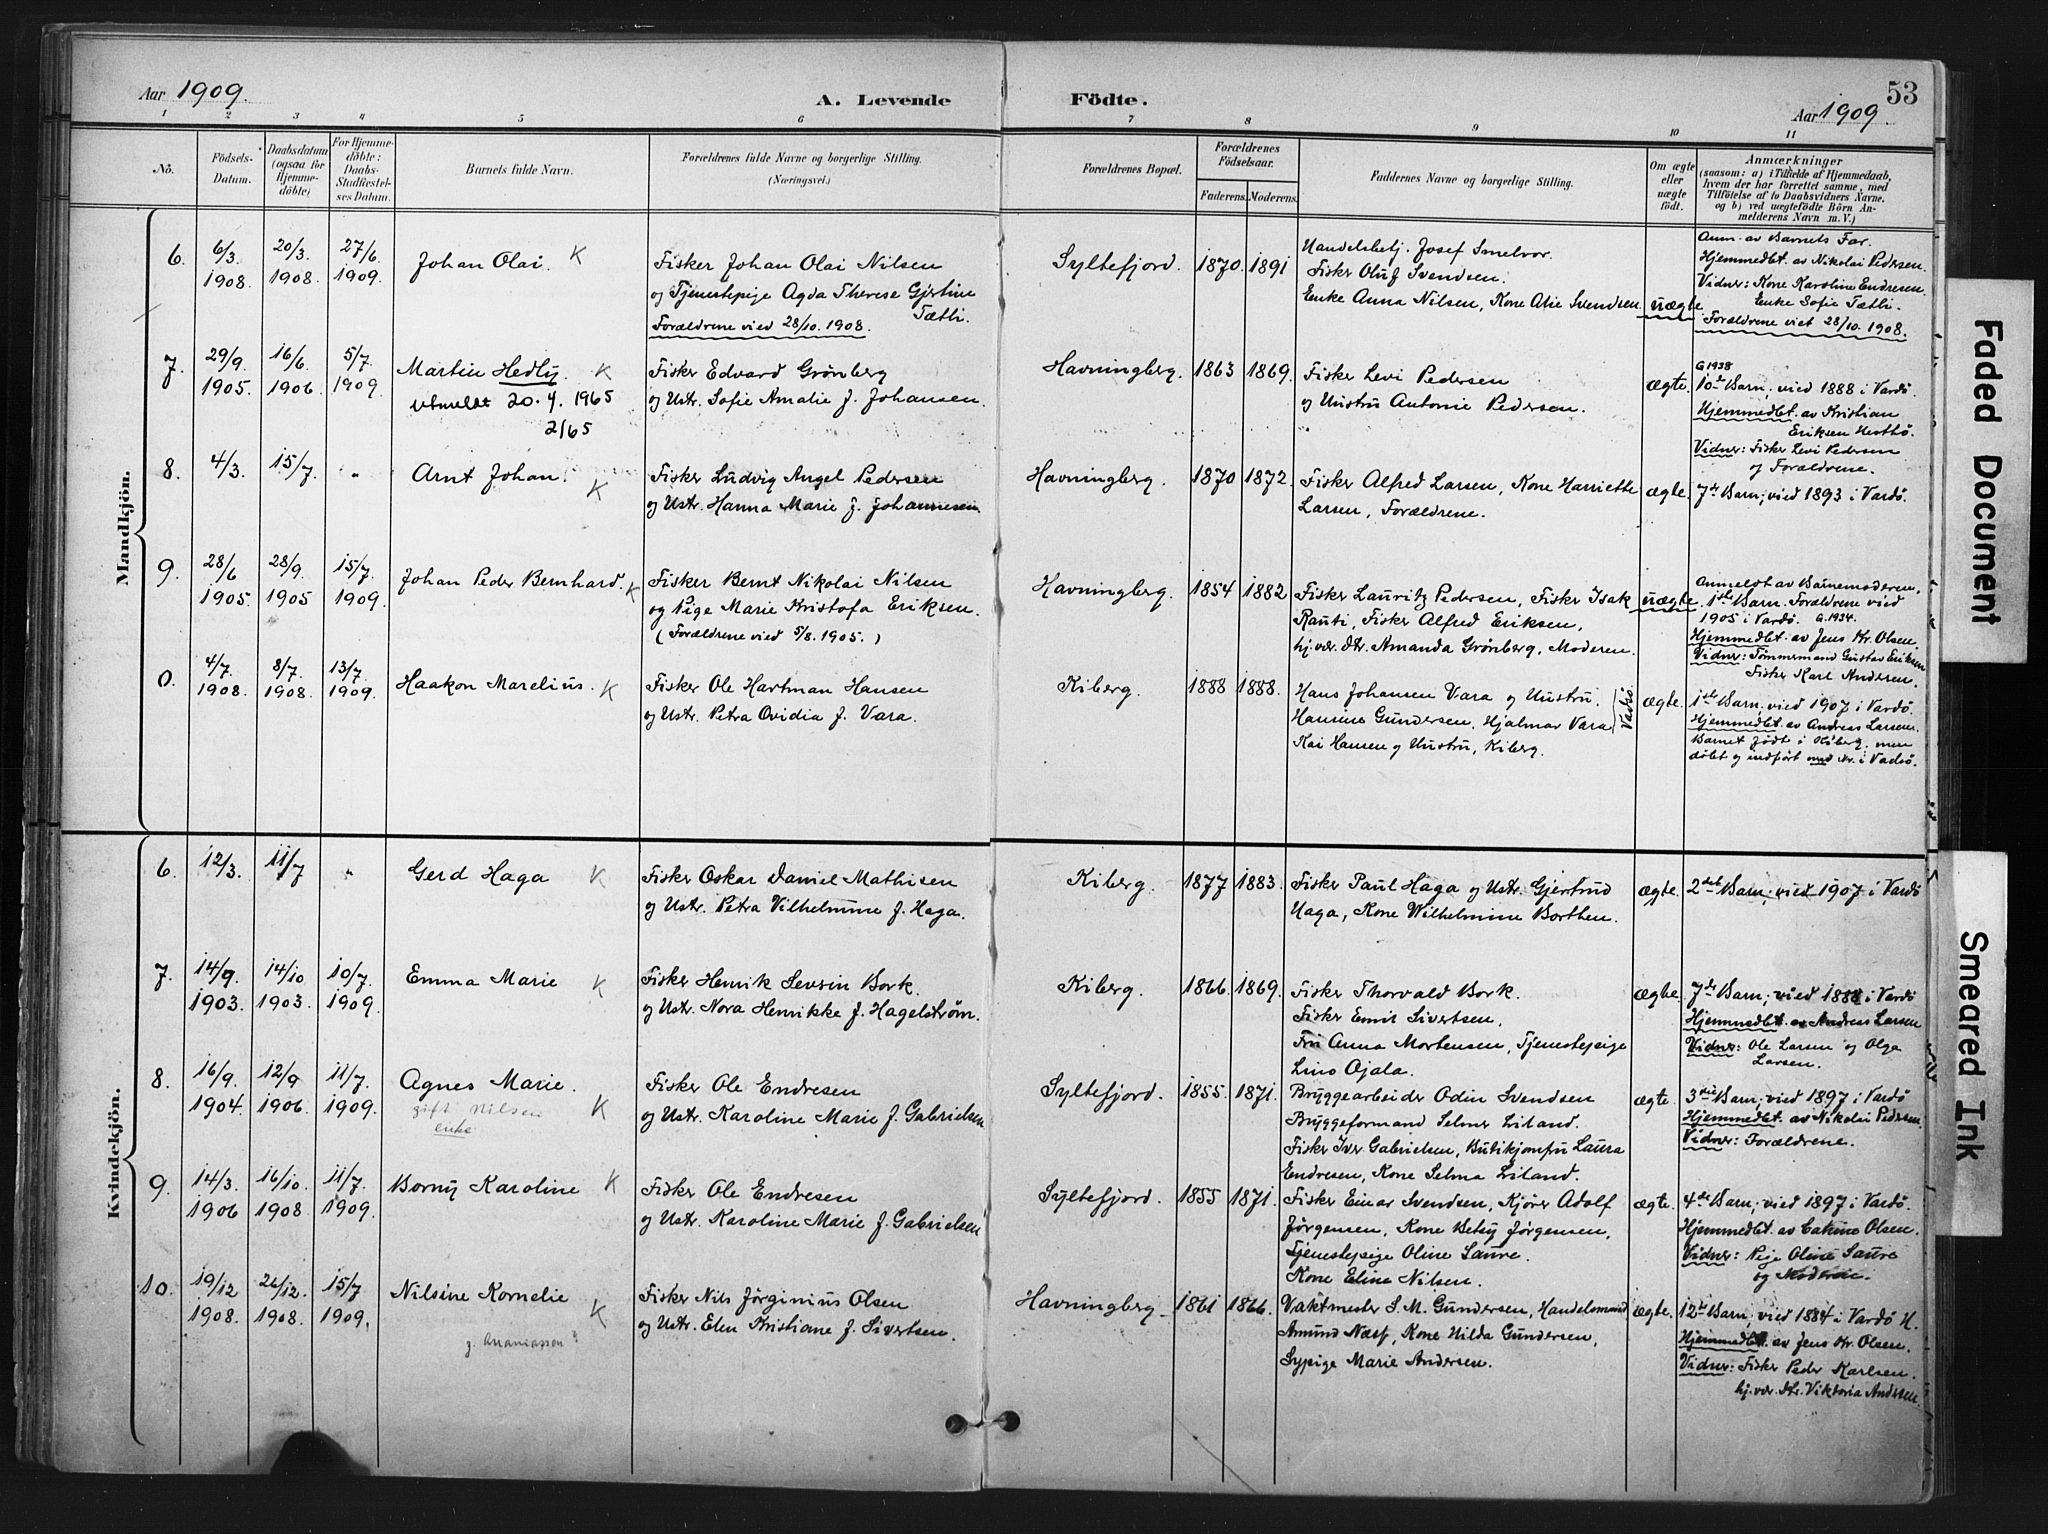 Aar 1909.
A. Levende
Födte.
53
Aar 1909.
1 2 3 4 5 6 7 8 9 10 11
No.
Födsels-
Datum.
Daabsdatum
(ogsaa for
Hjemme-
döbte)
For Hjemme-
döbte:
Daabs-
Stadfæstel-
ses Datum.
Barnets fulde Navn.
Forældrenes fulde Navne og borgerlige Stilling.
(Næringsvei.)
Forældrenes Bopæl.
Forældrenes
Födselsaar.
Faderens. Moderens.
Faddernes Navne og borgerlige Stilling.
Om ægte
eller
uægte
født.
Anmærkninger
(saasom: a) i Tilfælde af Hjemmedaab,
hvem der har forrettet samme, med
Tilföielse af to Daabsvidners Navne.
og b) ved uægtefödte Börn An-
melderens Navn m. V.)
Mandkjön.
6.
6/3
1908.
20/3.
1908.
27/6.
1909.
Johan Olai. K
Fisker Johan Olai Nilsen
og Tjenestepige Agda Therese Gjertine
Tætli.
Forældrene vied 28/10. 1908.
Syltefjord.
1870. 1891
Handelsbetj. Josef Smelvor.
Fisker Oluf Svendsen.
Enke Anna Nilsen, Kone Alie Svendsen.
uægte
Anm. av Barnets Far.
Hjemmedbt. av Nikolai Pedersen.
Vidner: Kone Karoline Endresen.
Enke Sofie Tætli.
Forældrene viet 28/10. 1908.
7.
29/9.
1905.
16/6.
1906.
5/7.
1909.
Martin Hedly. K
utmeldt 20.4.1965
2/65
Fisker Edvard Grønberg
og Ustr. Sofie Amalie f. Johansen.
Havningberg.
1863 1869.
Fisker Levi Pedersen
og Hustru Antonie Pedersen.
ægte.
G 1938
10de Barn; vied 1888 i Vardø.
Hjemmedbt. av Kristian
Eriksen Hesthø.
Vidner: Fisker Levi Pedersen
og Forældrene.
8.
4/3.
15/7.
"
Arnt Johan. K
Fisker Ludvig Angel Pedersen
og Ustr. Hanna Marie f. Johannesen.
Havningberg.
1870 1872.
Fisker Alfred Larsen, Kone Harriette
Larsen, Forældrene.
ægte.
7de Barn; vied 1893 i Vardø.
9.
28/6
1905.
28/9.
1905
15/7.
1909.
Johan Peder Bernhard. K
Fisker Bernt Nikolai Nilsen
og Pige Marie Kristofa Eriksen.
(Forældrene vied 5/8. 1905.)
Havningberg.
1854 1882
Fisker Lauritz Pedersen, Fisker Isak
Rauti, Fisker Alfred Eriksen,
hj.vær. dtr. Amanda Grønberg, Moderen.
uægte.
Anmeldt av Barnemoderen.
1ste Barn. Forældrene vied
1905 i Vardø. G. 1934.
Hjemmedbt. av Jens Kr. Olsen.
Vidner: Tømmermand Gustav Eriksen
Fisker Karl Andersen.
0.
4/7.
1908.
8/7.
1908.
13/7.
1909.
Haakon Marelius. K
Fisker Ole Hartman Hansen
og Ustr. Petra Ovidia f. Vara.
Kiberg.
1888 1888.
Hans Johansen Vara og Hustru.
Hanine Gundersen. Hjalmar Vara
Kai Hansen og Hustru, Kiberg.
Vadsø
ægte.
1ste Barn; vied 1907 i Vardø.
Hjemmedbt. av Andreas Larsen.
Barnet født i Kiberg; men
døbt og indført med Nr. i Vadsø.
Kvindekjön.
6.
12/3.
11/7
"
Gerd Haga K
Fisker Oskar Daniel Mathisen
og Ustr. Petra Vilhelmine f. Haga.
Kiberg.
1877 1883.
Fisker Paul Haga og Ustr. Gjertrud
Haga, Kone Wilhelmine Borthen.
ægte.
2det Barn; vied 1907 i Vardø
7.
14/9.
1903.
14/10
1903.
10/7.
1909.
Emma Marie K
Fisker Henrik Severin Bork.
og Ustr. Nora Henrikke f. Hagelstrøm.
Kiberg.
1866. 1869.
Fisker Thorvald Bork.
Fisker Emil Sivertsen.
Fru Anna Mortensen, Tjenestepige
Lino Ojala.
ægte.
7de Barn; vied 1888 i Vardø
Hjemmedbt. av Andreas Larsen
Vidner: Ole Larsen og Olga
Larsen.
8.
16/9.
1904.
12/9
1906.
11/7.
1909.
Agnes Marie.
gift Nilsen K
enke
Fisker Ole Endresen
og Ustr. Karoline Marie f. Gabrielsen
Syltefjord.
1855. 1871.
Bryggearbeider Odin Svendsen
Bryggeformand Selmer Liland.
Fisker Iver Gabrielsen, Butikjomfru Laura
Endresen, Kone Selma Liland.
ægte.
3die Barn; vied 1897 i Vardø
Hjemmedbt. av Nikolai Pedersen.
Vidner: Forældrene.
9.
14/3.
1906
16/10.
1908
11/7.
1909.
Borny Karoline K
Fisker Ole Endresen
og Ustr. Karoline Marie f. Gabrielsen
Syltefjord.
1855 1871.
Fisker Einar Svendsen, Kjører Adolf
Jørgensen, Kone Betsy Jørgensen,
Tjenestepige Oline Saure.
Kone Eline Nilsen.
ægte.
4de Barn; vied 1897 i Vardø.
Hjemmedbt. av Catrine Olsen.
Vidner: Pige Oline Saure
og Moderen.
10.
19/12
1908.
26/12.
1908.
15/7
1909.
Nilsine Kornelie K
g. Ananiassen?
Fisker Nils Jørginius Olsen
og Ustr. Elen Kristiane f. Sivertsen.
Havningberg.
1861 1866.
Vaktmester S. M. Gundersen, Handelsmand
Amund Næss, Kone Hilda Gundersen,
Sypige Marie Andersen.
ægte.
12te Barn; vied 1884 i Vardø H.
Hjemmedbt. av Jens Kr. Olsen.
Vidner: Fisker Peder Karlsen.
hj.vær. dtr. Viktoria Andersen
Faded Document
Smeared Ink